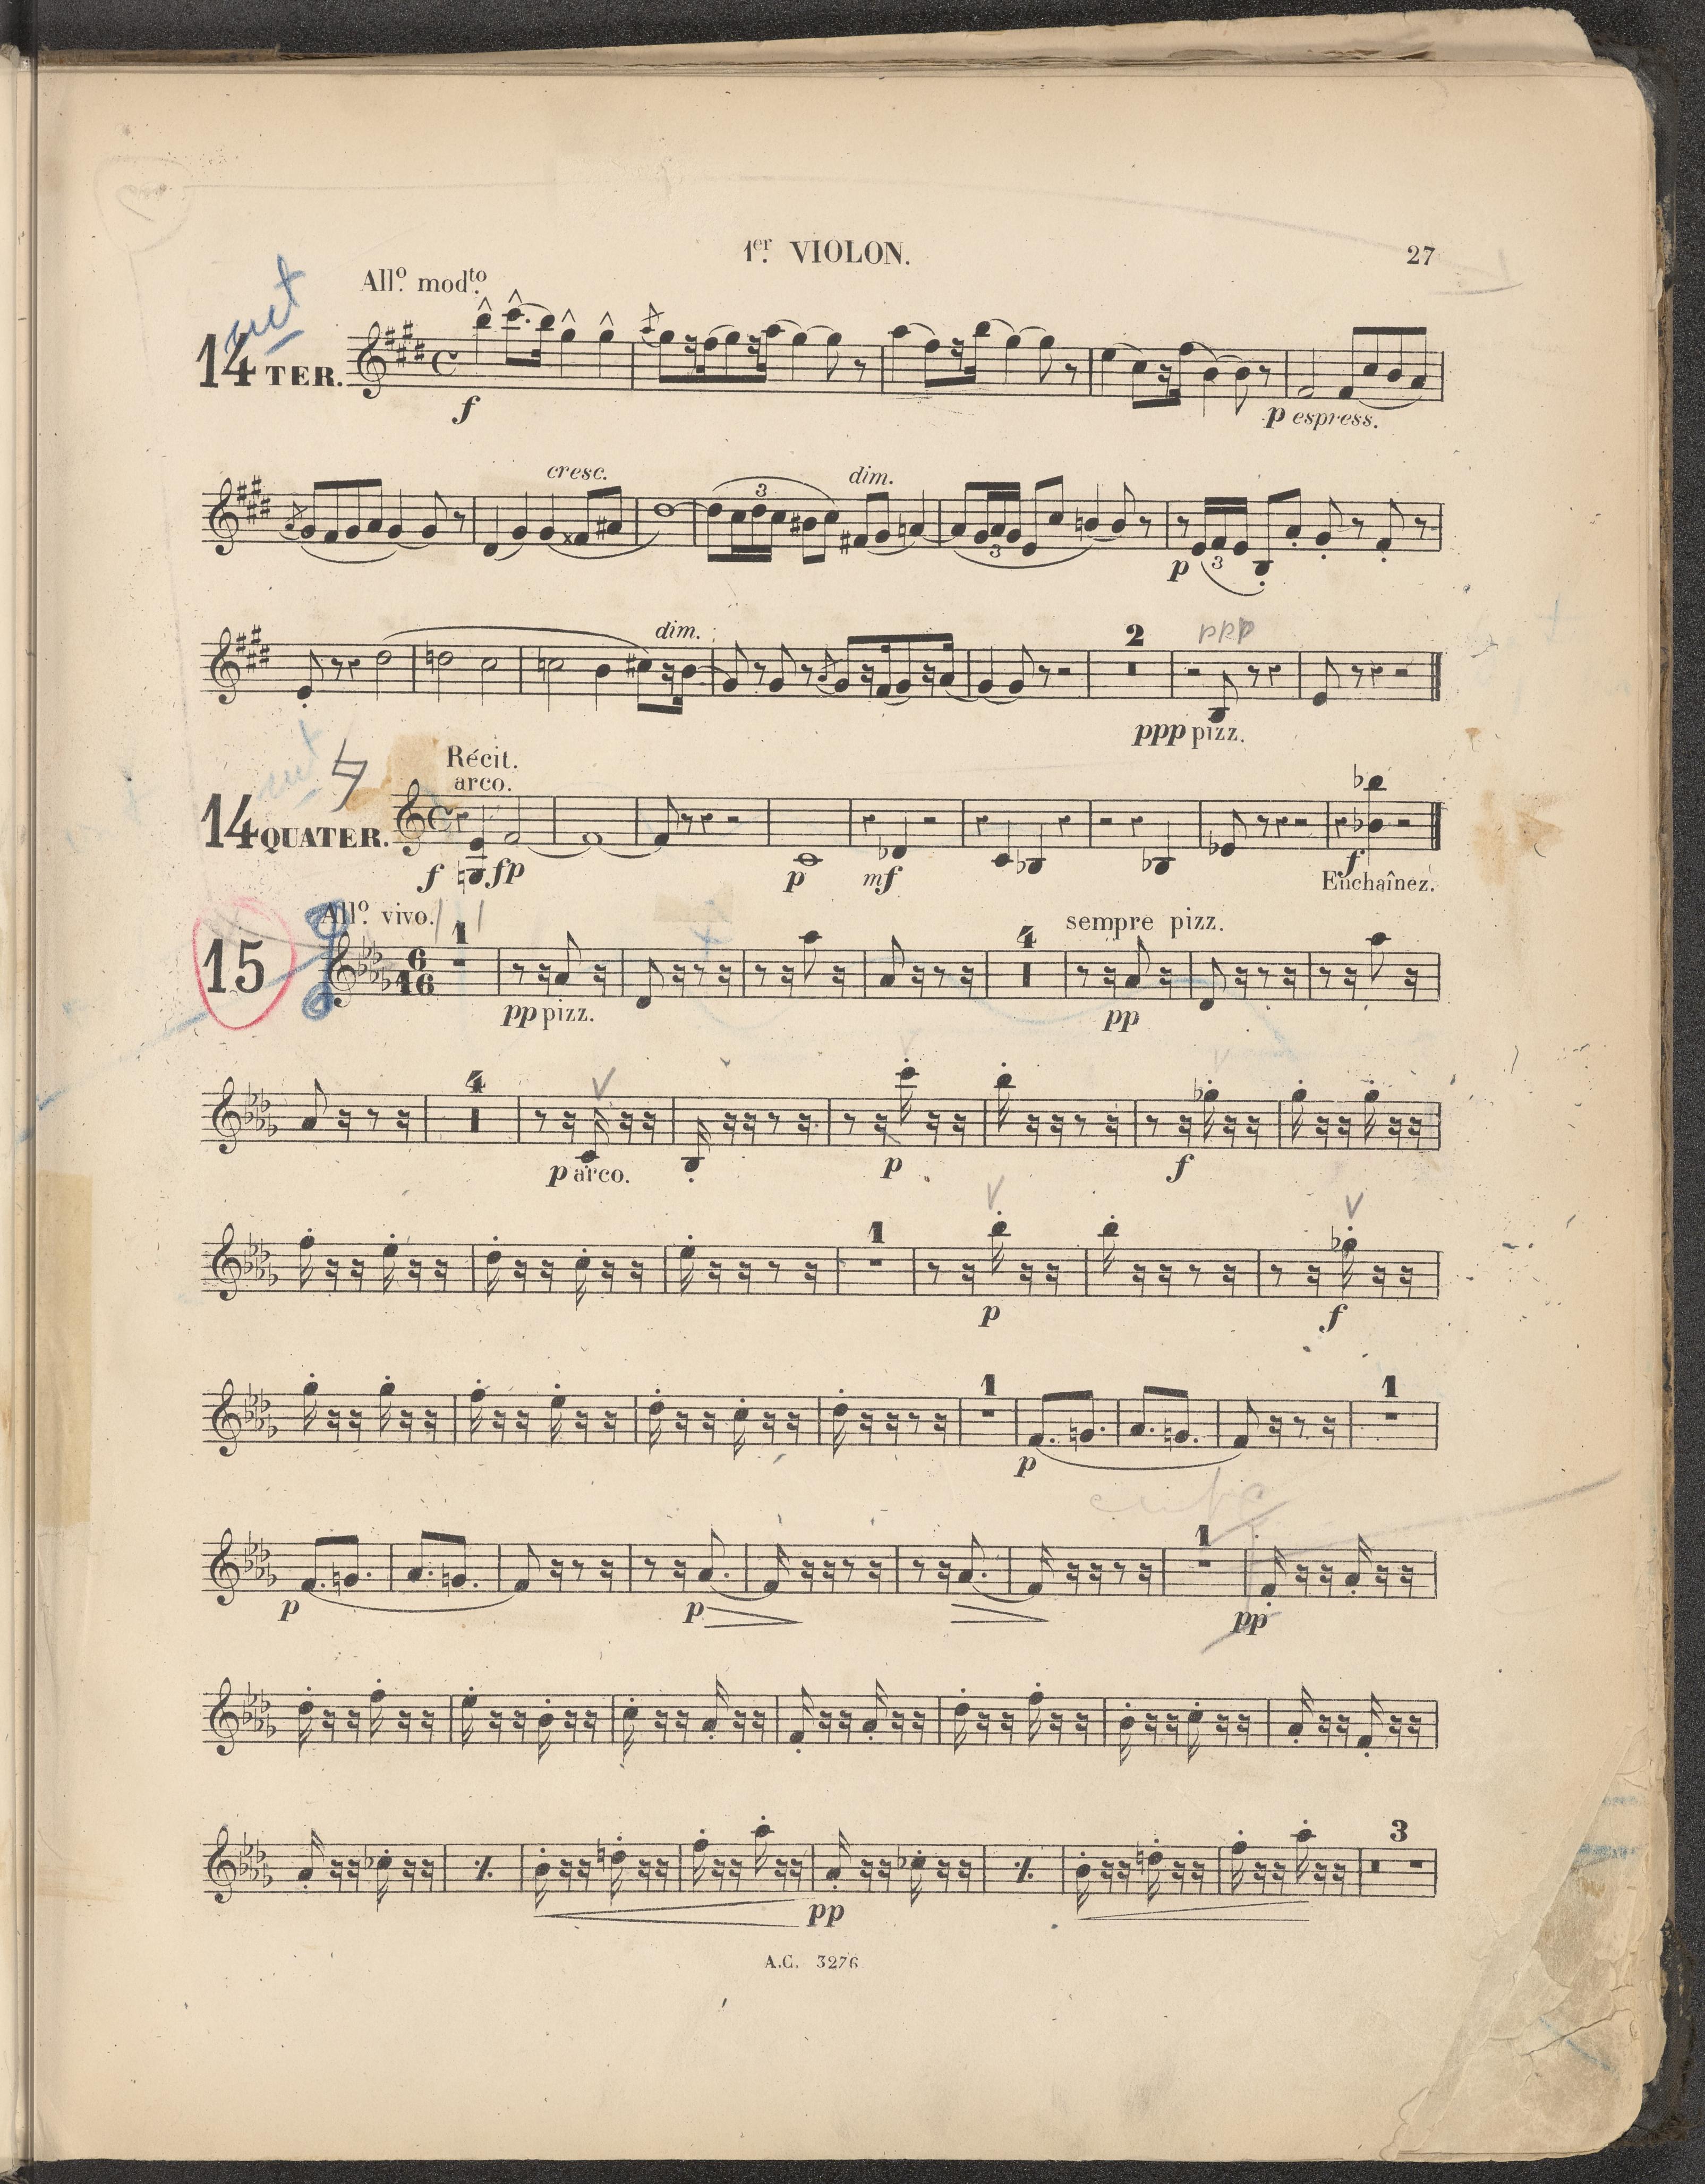 1er. VIOLON.
27
Allo. modto.
cut
14 TER.
f
p espress.
cresc.
dim.
3
3
p
3
dim.
2
ppp
ppp pizz.
Récit.
arco.
cut
14 QUATER.
f
fp
p
mf
f
Enchaînez.
Allo. vivo.
15
6
16
1
pp pizz.
4
sempre pizz.
pp
4
p arco.
p
f
1
p
f
1
p
1
p
p
1
pp
pp
3
A.C. 3276